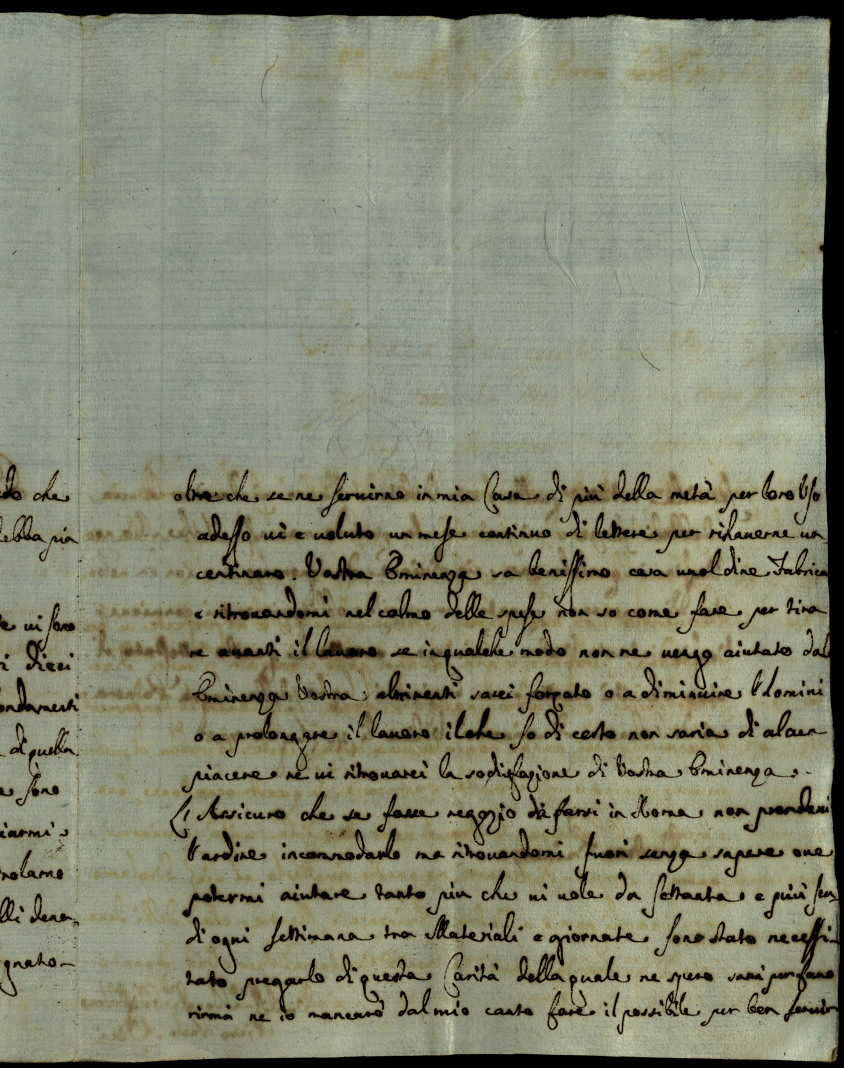 do che
debba più
e vi sono
ri dieci
ondamenti
di quella
e sono
iarmi
rolamo
lli dena
gnato
oltre che se ne servirno in mia Casa di più della metà per loro Uso
adesso vi e voluto un mese continuo di lettere per rihaverne un
centinaro. Vostra Eminenza sa benissimo cosa vuol dire Fabrica
e ritrovandomi nel calmo delle spese non so come fare per tira
re avanti il lavoro se in qualche modo non ne vengo aiutato dal
Eminenza Vostra altrimenti sarei forzato o a diminuire l'Homini
o a prolongare il lavoro il che so di certo non saria di alcun
piacere ne vi ritrovarei la sodisfazione di Vostra Eminenza.
L'Assicuro che se fosse negozio da farsi in Roma non prenderei
l'ardire incommodarlo ma ritrovandomi fuori senza sapere ove
potermi aiutare tanto più che vi vole da settanta e più scu
di ogni settimana tra Materiali e giornate sono stato necessi
tato pregarlo di questa Carità della quale ne spero sarà per favo
rirmi ne io mancarò dal mio canto fare il possibile per ben servir